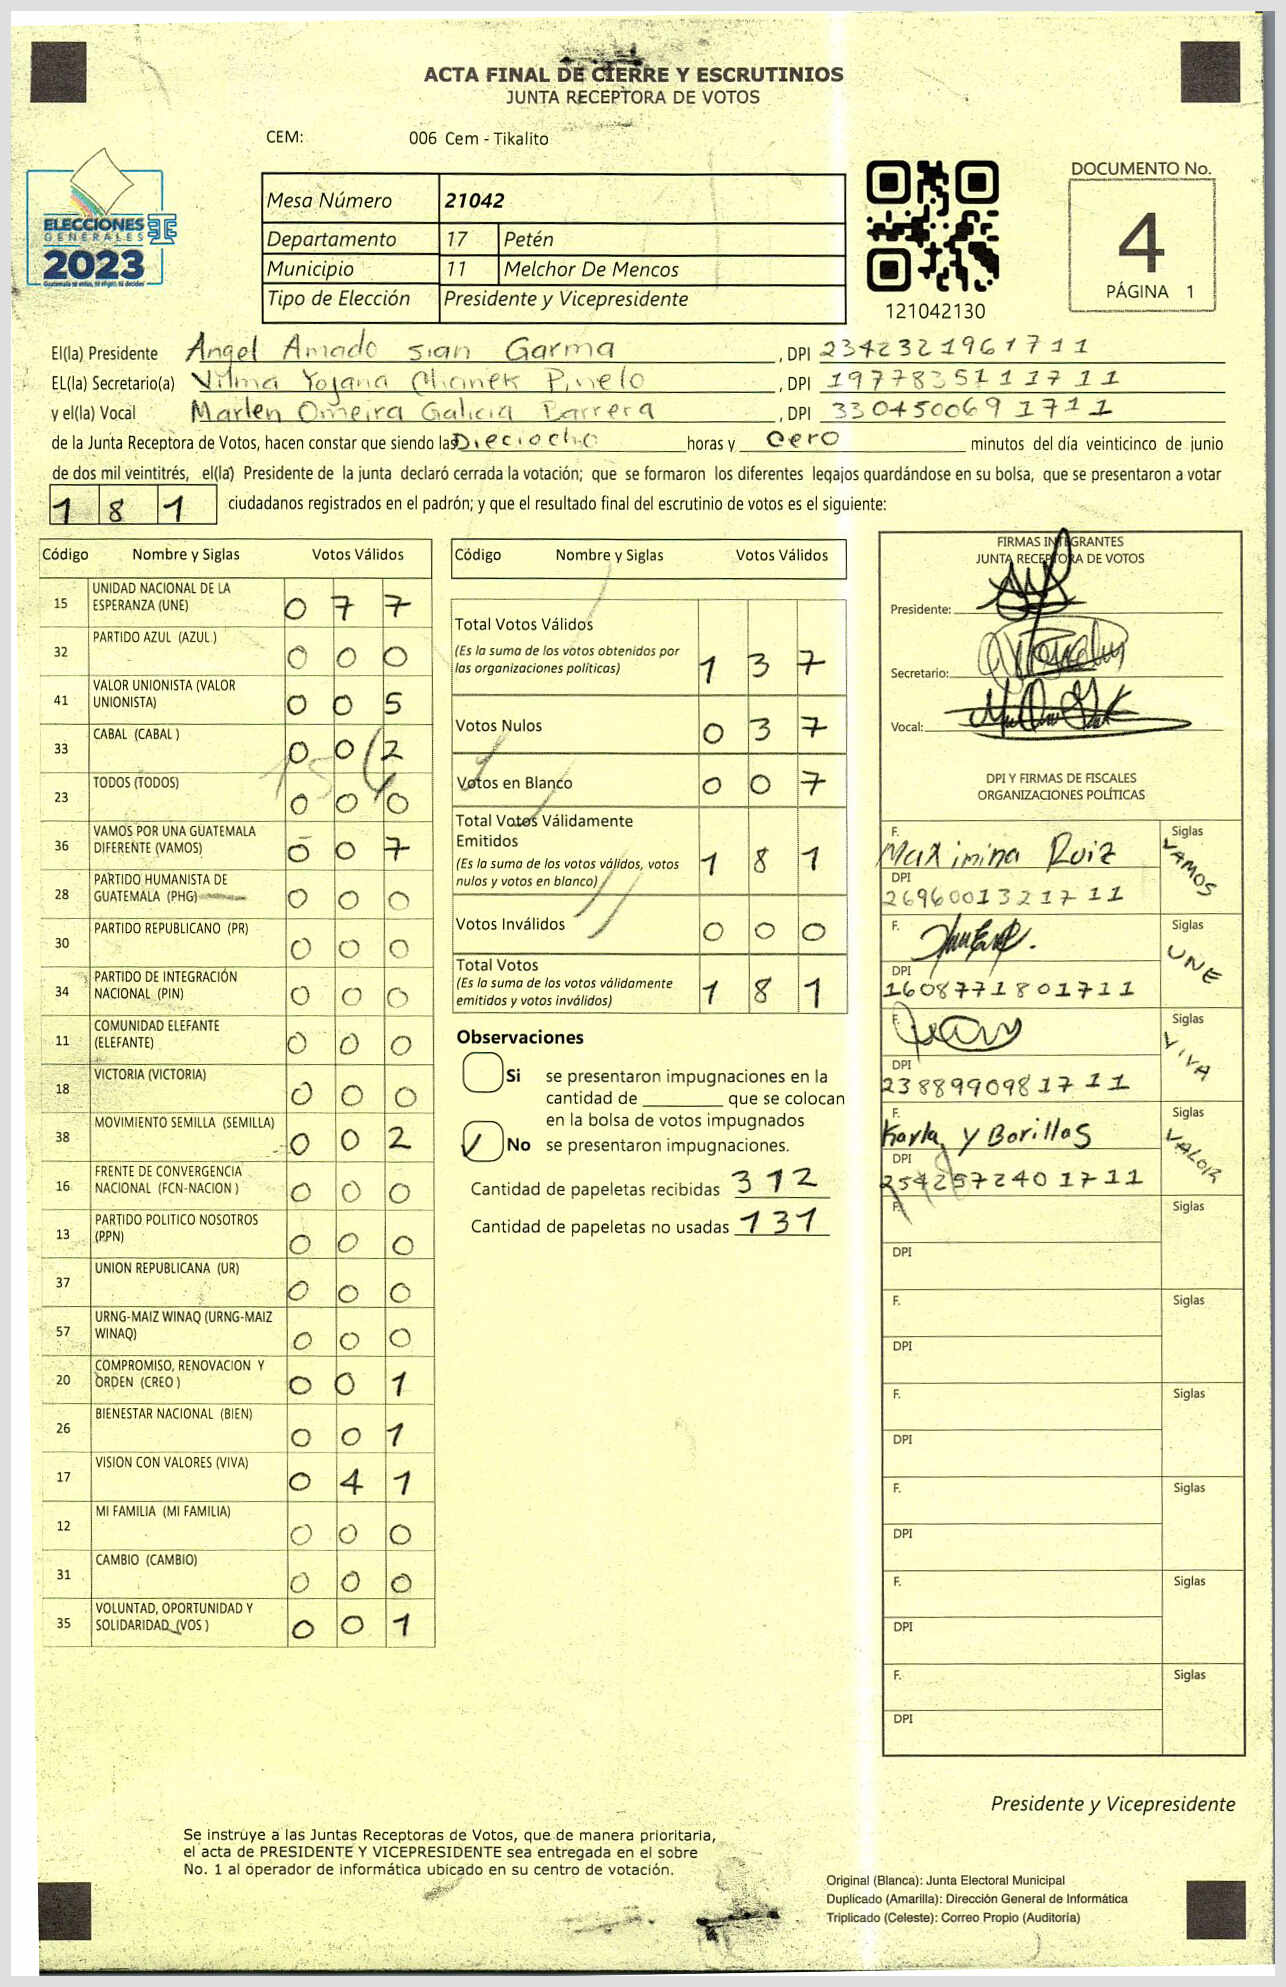 ACTA FINAL DE CIERRE Y ESCRUTINIOS
JUNTA RECEPTORA DE VOTOS
CEM: 006 Cem - Tikalito
ELECCIONES
GENERALES
2023
Guatemala se estos, se eliges, tú decides
Mesa Número 21042
Departamento 17 Petén
Municipio 11 Melchor De Mencos
Tipo de Elección Presidente y Vicepresidente
121042130
DOCUMENTO No.
4
PÁGINA 1
El(la) Presidente Angel Amado sian Garma , DPI 2342321961711
EL(la) Secretario(a) Vilma Yojana Chanek Pinelo , DPI 1977835111711
y el(la) Vocal Marlen Omeira Galicia Barrera , DPI 3304500691711
de la Junta Receptora de Votos, hacen constar que siendo las Dieciocho horas y cero minutos del día veinticinco de junio
de dos mil veintitrés, el(la) Presidente de la junta declaró cerrada la votación; que se formaron los diferentes legajos quardándose en su bolsa, que se presentaron a votar
1 8 1 ciudadanos registrados en el padrón; y que el resultado final del escrutinio de votos es el siguiente:
Código Nombre y Siglas Votos Válidos
15 UNIDAD NACIONAL DE LA
ESPERANZA (UNE) 0 7 7
32 PARTIDO AZUL (AZUL ) 0 0 0
41 VALOR UNIONISTA (VALOR
UNIONISTA) 0 0 5
33 CABAL (CABAL ) 0 0 2
23 TODOS (TODOS) 0 0 0
36 VAMOS POR UNA GUATEMALA
DIFERENTE (VAMOS) 0 0 7
28 PARTIDO HUMANISTA DE
GUATEMALA (PHG) 0 0 0
30 PARTIDO REPUBLICANO (PR) 0 0 0
34 PARTIDO DE INTEGRACIÓN
NACIONAL (PIN) 0 0 0
11 COMUNIDAD ELEFANTE
(ELEFANTE) 0 0 0
18 VICTORIA (VICTORIA) 0 0 0
38 MOVIMIENTO SEMILLA (SEMILLA) 0 0 2
16 FRENTE DE CONVERGENCIA
NACIONAL (FCN-NACION ) 0 0 0
13 PARTIDO POLITICO NOSOTROS
(PPN) 0 0 0
37 UNION REPUBLICANA (UR) 0 0 0
57 URNG-MAIZ WINAQ (URNG-MAIZ
WINAQ) 0 0 0
20 COMPROMISO, RENOVACION Y
ORDEN (CREO ) 0 0 1
26 BIENESTAR NACIONAL (BIEN) 0 0 1
17 VISION CON VALORES (VIVA) 0 4 1
12 MI FAMILIA (MI FAMILIA) 0 0 0
31 CAMBIO (CAMBIO) 0 0 0
35 VOLUNTAD, OPORTUNIDAD Y
SOLIDARIDAD (VOS ) 0 0 1
Código Nombre y Siglas Votos Válidos
Total Votos Válidos
(Es la suma de los votos obtenidos por
las organizaciones políticas) 1 3 7
Votos Nulos 0 3 7
Votos en Blanco 0 0 7
Total Votos Válidamente
Emitidos
(Es la suma de los votos válidos, votos
nulos y votos en blanco) 1 8 1
Votos Inválidos 0 0 0
Total Votos
(Es la suma de los votos válidamente
emitidos y votos inválidos) 1 8 1
Observaciones
Si se presentaron impugnaciones en la
cantidad de ________ que se colocan
en la bolsa de votos impugnados
✓ No se presentaron impugnaciones.
Cantidad de papeletas recibidas 312
Cantidad de papeletas no usadas 131
FIRMAS INTEGRANTES
JUNTA RECEPTORA DE VOTOS
Presidente:
Secretario:
Vocal:
DPI Y FIRMAS DE FISCALES
ORGANIZACIONES POLÍTICAS
F. Maximina Ruiz Siglas VAMOS
DPI 2696001321711
F. Siglas UNE
DPI 1608771801711
F. Siglas VIVA
DPI 2388990981711
F. Karla Y Borillas Siglas VALOR
DPI 2542572401711
F. Siglas
DPI
F. Siglas
DPI
F. Siglas
DPI
F. Siglas
DPI
F. Siglas
DPI
F. Siglas
DPI
Presidente y Vicepresidente
Se instruye a las Juntas Receptoras de Votos, que de manera prioritaria,
el acta de PRESIDENTE Y VICEPRESIDENTE sea entregada en el sobre
No. 1 al operador de informática ubicado en su centro de votación.
Original (Blanca): Junta Electoral Municipal
Duplicado (Amarilla): Dirección General de Informática
Triplicado (Celeste): Correo Propio (Auditoría)